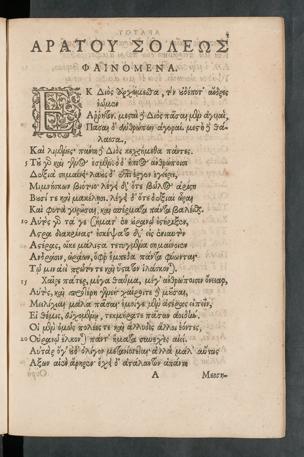 ΑΡΑΤΟΥ ΣΟΛΕΩΣ
ΦΑΙΝΟΜΕΝΑ.
ΕΚ Διὸς ἀρχώμεσθα, τὸν οὐδέποτ' ἄνδρες
ἐῶμεν
Ἄῤῥητον. μεσταὶ δὲ Διὸς πᾶσαι μὲν ἀγυιαὶ,
Πᾶσαι δ' ἀνθρώπων ἀγοραί. μεστὴ δὲ θά-
λασσα,
Καὶ λιμένες· πάντη δὲ Διὸς κεχρήμεθα πάντες.
5 Τοῦ γὰρ καὶ γένος ἐσμέν· ὁ δ' ἤπιος ἀνθρώποισι
Δεξιὰ σημαίνει· λαοὺς δ' ἐπὶ ἔργον ἐγείρει,
Μιμνήσκων βιότοιο· λέγει δ', ὅτε βῶλος ἀρίστη
Βουσί τε καὶ μακέλῃσι. λέγει δ' ὅτε δεξιαὶ ὧραι
Καὶ φυτὰ γυρῶσαι, καὶ σπέρματα πάντα βαλέσθαι.
10 Αὐτὸς γὰρ τά γε σήματ' ἐν οὐρανῷ ἐστήριξεν,
Ἄστρα διακρίνας· ἐσκέψατο δ' εἰς ἐνιαυτὸν
Ἀστέρας, οἵ κε μάλιστα τετυγμένα σημαίνοιεν
Ἀνδράσιν, ὡράων, ὄφρ' ἔμπεδα πάντα φύωνται·
Τῷ μιν ἀεὶ πρῶτόν τε καὶ ὕστατον ἱλάσκονται.
15 Χαῖρε πάτερ, μέγα θαῦμα, μέγ' ἀνθρώποισιν ὄνειαρ,
Αὐτὸς, καὶ προτέρη γενεή· χαίροιτε δὲ μοῦσαι,
Μειλίχιαι μάλα πᾶσαι· ἐμοίγε μὲν ἀστέρας εἰπεῖν,
Εἰ θέμις, εὐχομένῳ, τεκμήρατε πᾶσαν ἀοιδήν.
Οἱ μὲν ὁμῶς πολέες τε καὶ ἄλλυδις ἄλλοι ἐόντες,
20 Οὐρανῷ ἕλκονται πάντ' ἤματα συνεχὲς αἰεί.
Αὐτὰρ ὅγ' οὐδ' ὀλίγον μετανίσσεται· ἀλλὰ μάλ' αὕτως
Ἄξων αἰὲν ἄρηρεν· ἔχει δ' ἀτάλαντον ἁπάντη
A Μεσση-